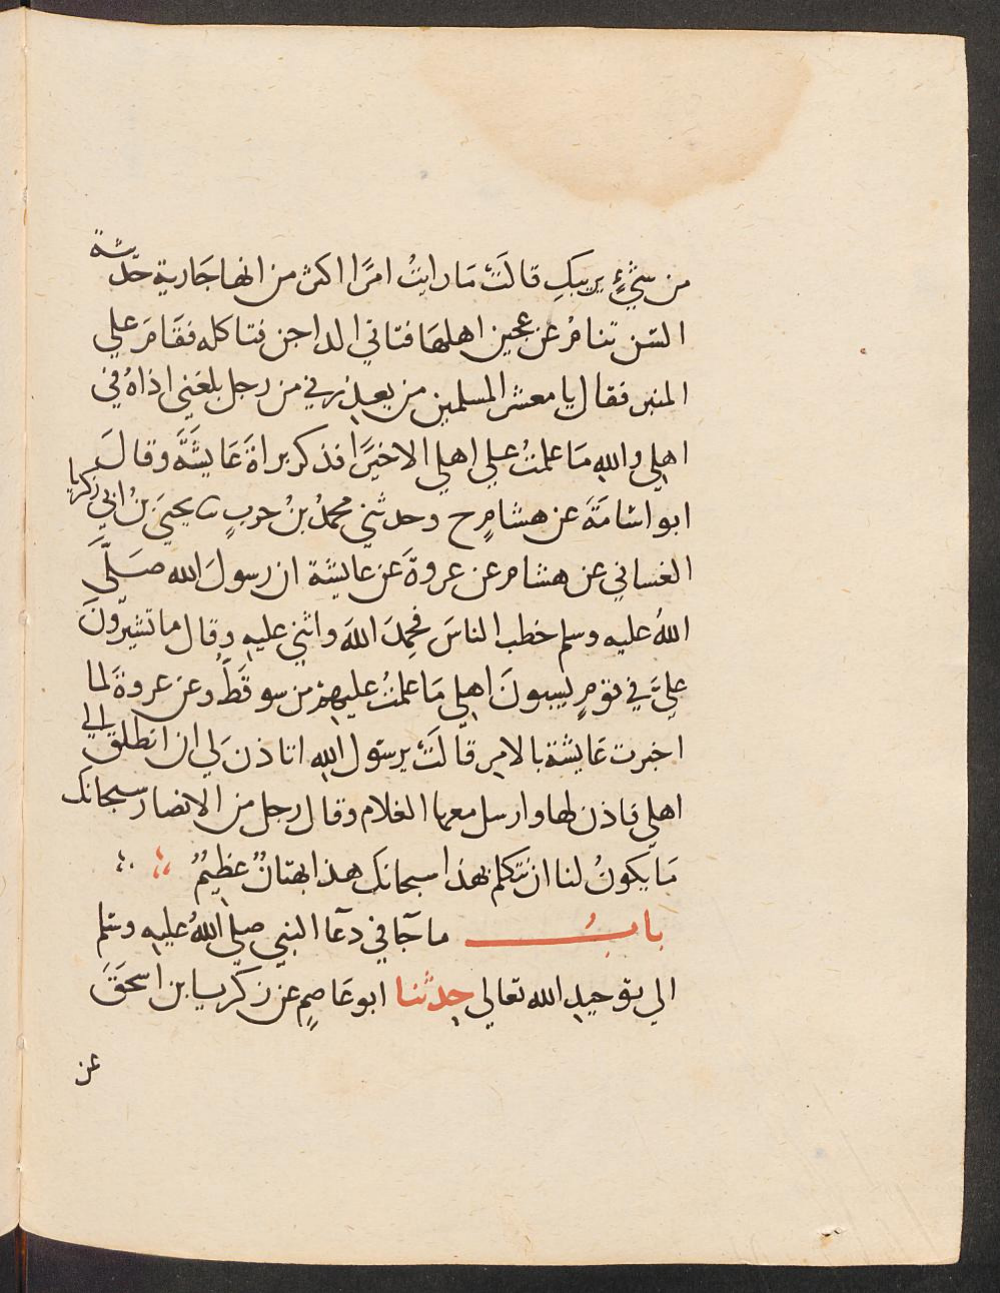 من شيْءٍ يريبكِ قالَتْ مَا رايتُ امرًا اكثر من انها جارية حدّثة
السّن تنام عن عجين اهلهَا فتاتي الداجن فتاكله فقَامَ علي
المنبر فقال يا معشر المسلمين من يعذرني من رجل بلغني اذاهُ في
اهلي والله مَا علمتُ علي اهلي الا خيرًا فذكر براةَ عَايشَةَ وقالَ
ابو اسَامَةَ عن هشامٍ ح وحدثني محمدُ بنُ حربٍ ثنا يحيَي بنُ ابي زكريا
الغساني عن هشام عن عروةَ عَن عايشة ان رسولَ الله صَلَّي
اللهُ عليه وسلم خطب الناسَ فحمِدَ اللهَ واثني عليهِ وقال ما تشيرُونَ
عليَّ في قومٍ يسبونَ اهلي مَا علمتُ عليهِمْ من سو قَطُّ وعن عروةَ لما
اخبرت عَايشة بالامر قالَتْ يرسَول الله اتاذن لي ان انطلق الي
اهلي فاذن لها وارسل معها الغلام وقال رجل من الانصار سبحانك
مَا يكونُ لنا ان نتكلم بهذا سبحانك هذا بهتانٌ عظيمٌ
بابُ ما جآ في دعآ النبي صلي اللهُ عليه وسلم
الي توحيد الله تعالي حدثنا ابو عَاصمٍ عن زكريا بن اسحَقَ
عن